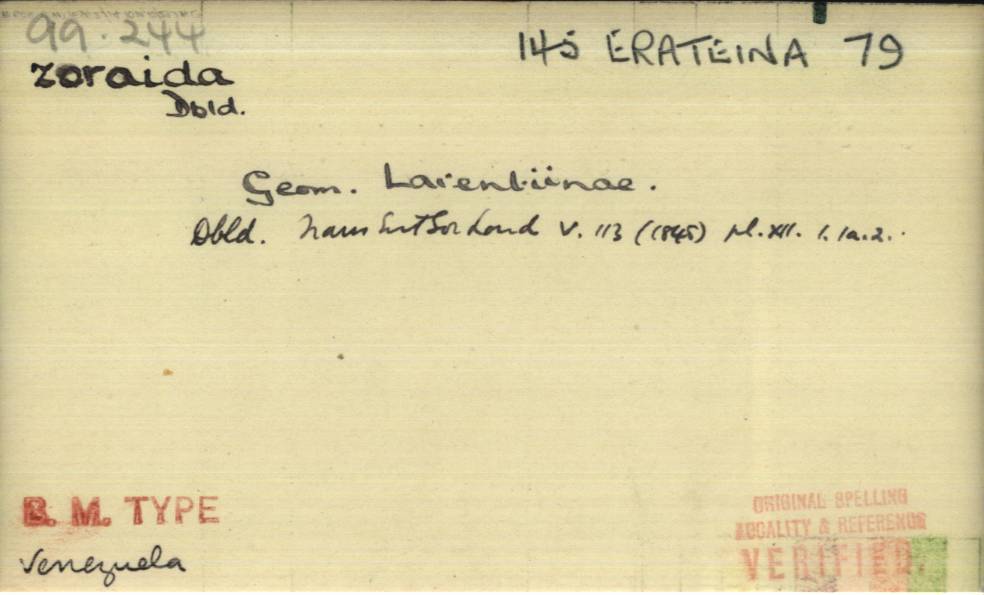 99.244
145 ERATEINA 79
zoraida
Dbld.
Geom. Larentiinae.
Dbld. Trans Ent Soc Lond V. 113 (1845) pl. XII. 1. 1a. 2.
B. M. TYPE
Venezuela
ORIGINAL SPELLING
LOCALITY & REFERENCE
VERIFIED